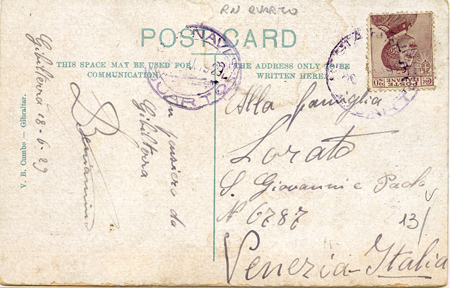 RN QUARTO
POST CARD
THIS SPACE MAY BE USED FOR COMMUNICATION.
THE ADDRESS ONLY TO BE WRITTEN HERE.
NAVE
QUARTO
Gibilterra 18-6-29
Un pensiero da
Gibilterra
Beniamino
V. B. Cumbo – Gibraltar.
Alla famiglia
Lorato
S. Giovanni e Paolo
N 6787
13/
Venezia - Italia